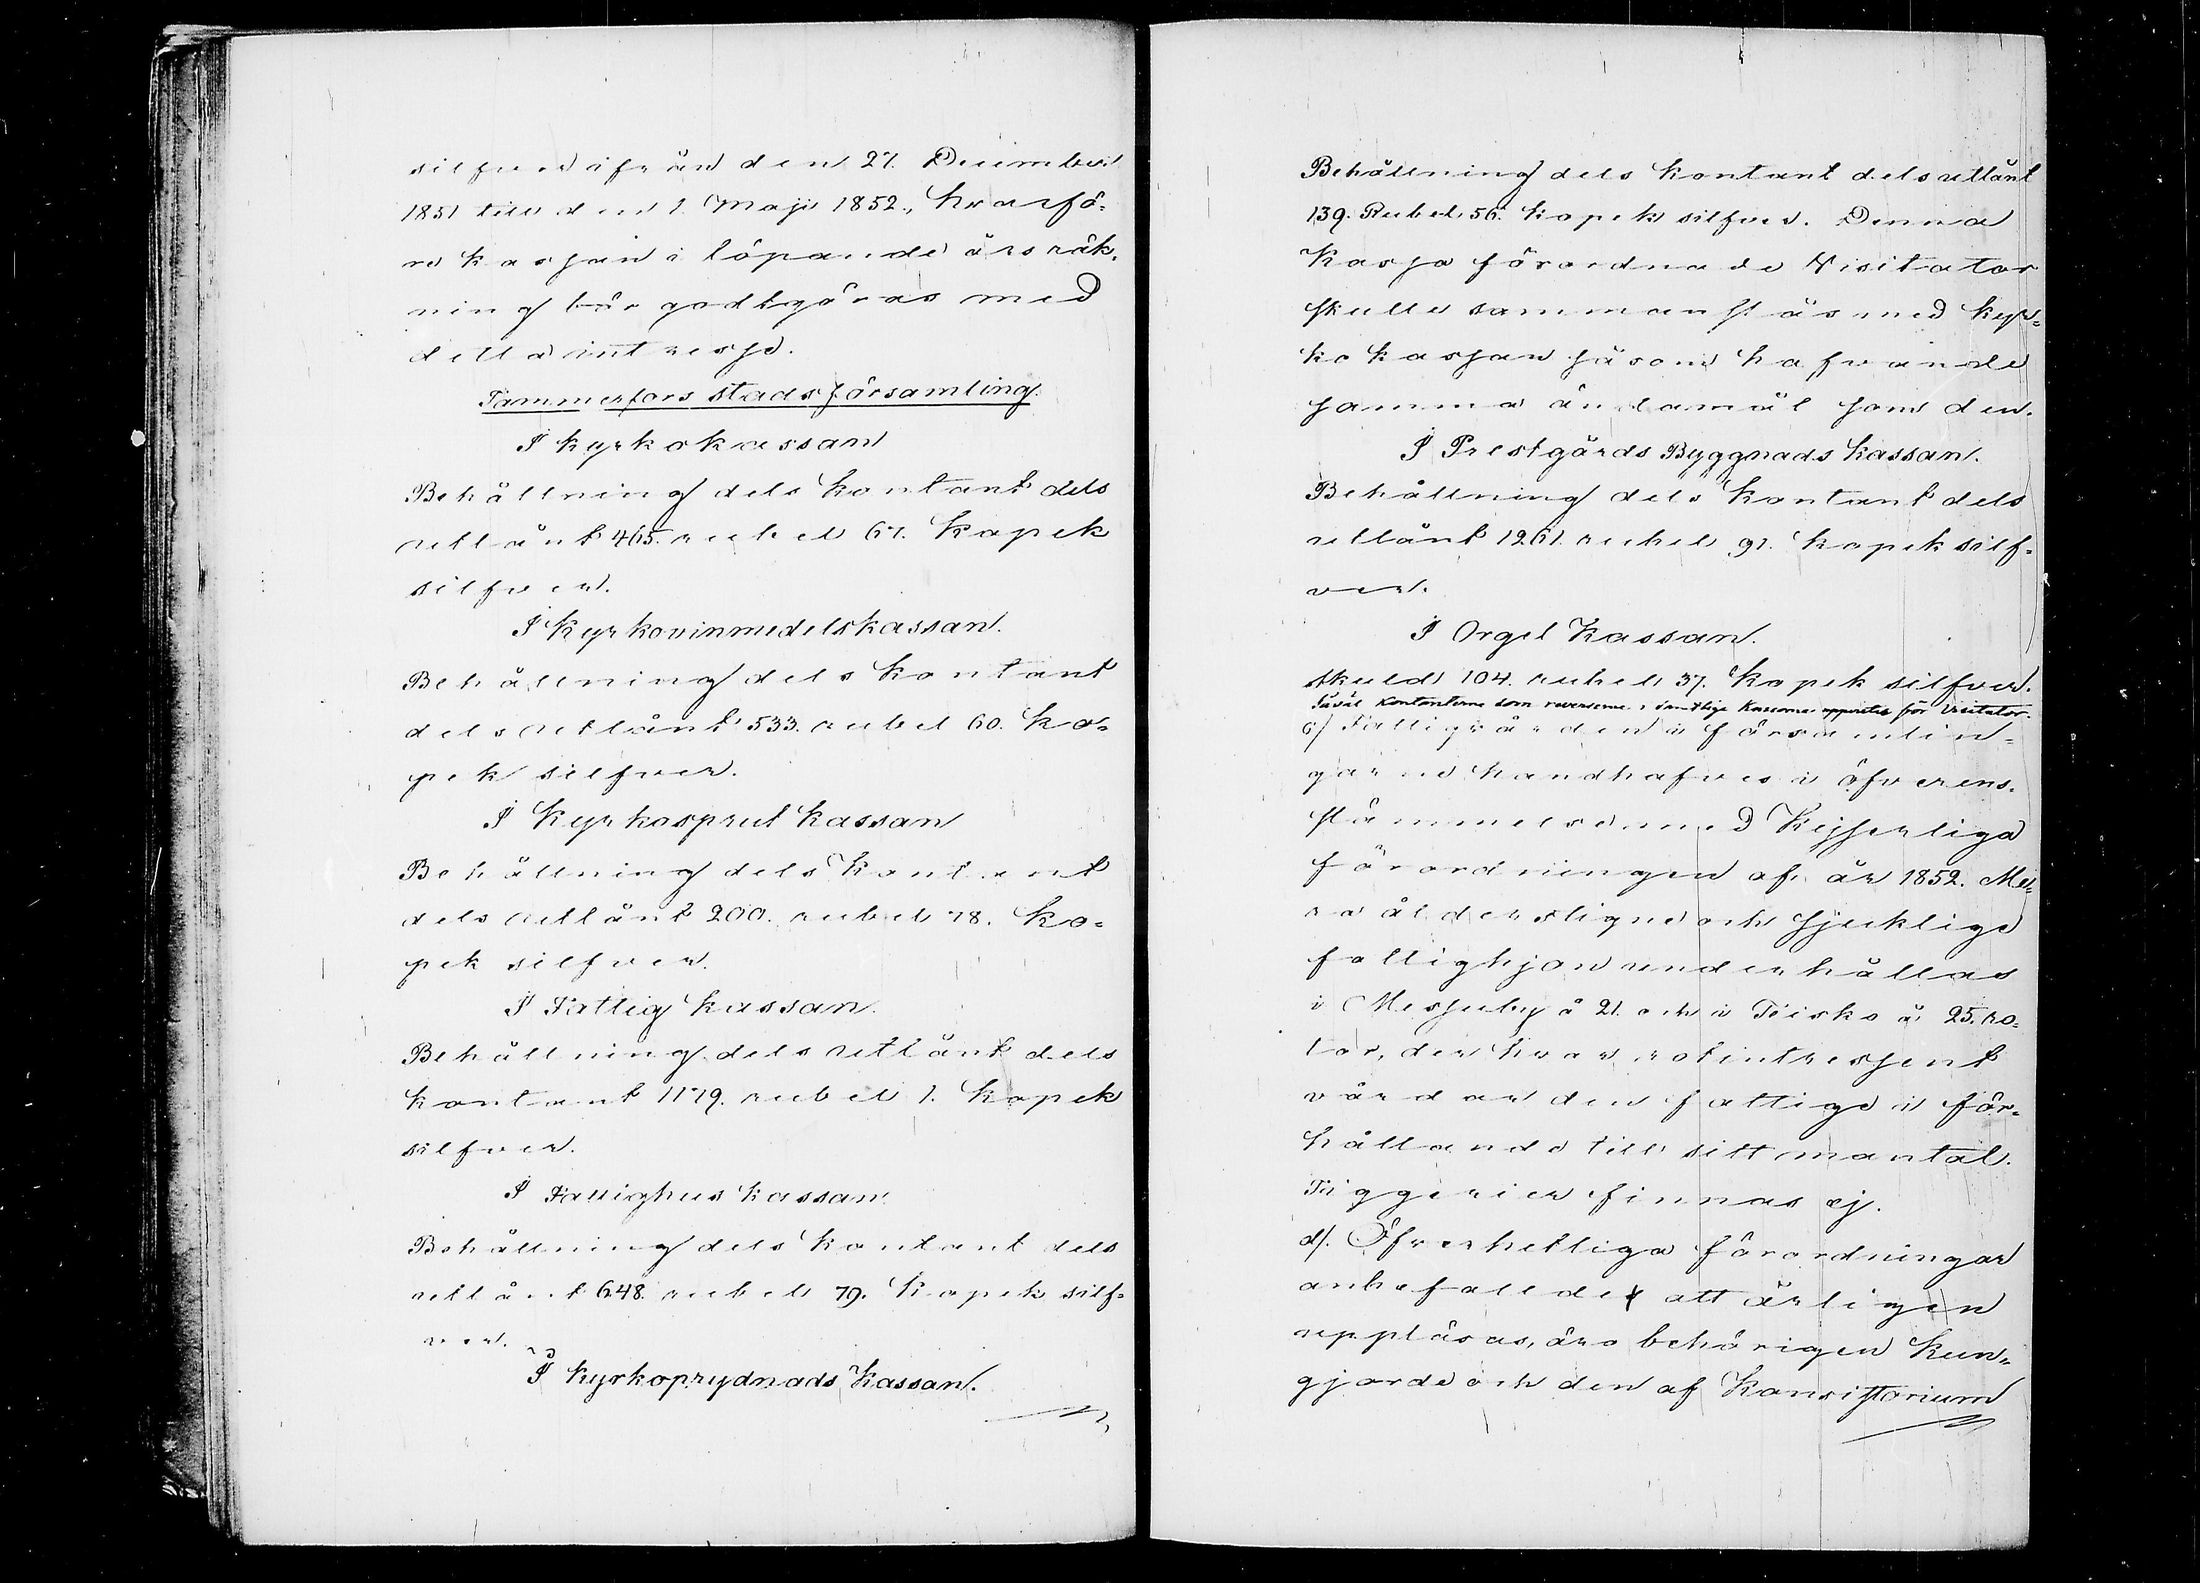 silfver ifrån den 27. December
1851 till den 1. Maji 1852., hvarfö-
re kassan i löpande års räk-
ning bör godtgöras med
detta intresse.
Tammerfors stads församling.
I kyrkokassan
Behållning dels kontant dels
utlånt 465. rubel 67. kopek
silfver.
I Kyrkovinmedelskassan.
Behållning dels kontant
dels utlånt 533. rubel 60. ko-
pek silfver.
I Kyrkosprut kassan
Behållning dels kontant
dels utlånt 200. rubel 78. ko-
pek silfver.
I Fattig kassan.
Behållning dels utlånt dels
kontant 1179. rubel 1. kopek
silfver.
I Fattighus kassan
Behållning dels kontant dels
utlånt 648. rubel 79. kopek silf-
ver.
I kyrkoprydnads kassan.
Behållning dels kontant dels utlånt
139. Rubel 56. kopek silfver. Denna
kassa förordnade Visitator
skulle sammanslås med kyr-
ko kassan såsom hafvande
samma ändamål som den.
I Prestgårds Byggnads kassan.
Behållning dels kontant dels
utlånt 1261. rubel 91. kopek silf-
ver.
I Orgel kassan.
skuld 104. rubel 37. kopek silfver.
Såväl kontanterne som reverserne i samtlige kassorne uppvistes för Visitator.
c) Fattigvården i försam­lin-
garne handhafves i öfverens-
stämmelse med Kejserliga
förordningen af år 1852. Me-
ra ålderstigne och sjuklige
fattighjon underhållas
i Messuby å 21. och i Teisko å 25. ro-
tar, der hvar rotintressent
vårdar den fattige i för-
hållande till sitt mantal.
Tiggerier finnas ej.
d). Öfverhetliga förordningar
anbefallde att årligen
uppläsas, äro behörigen kun-
gjorde och den af Konsistorium